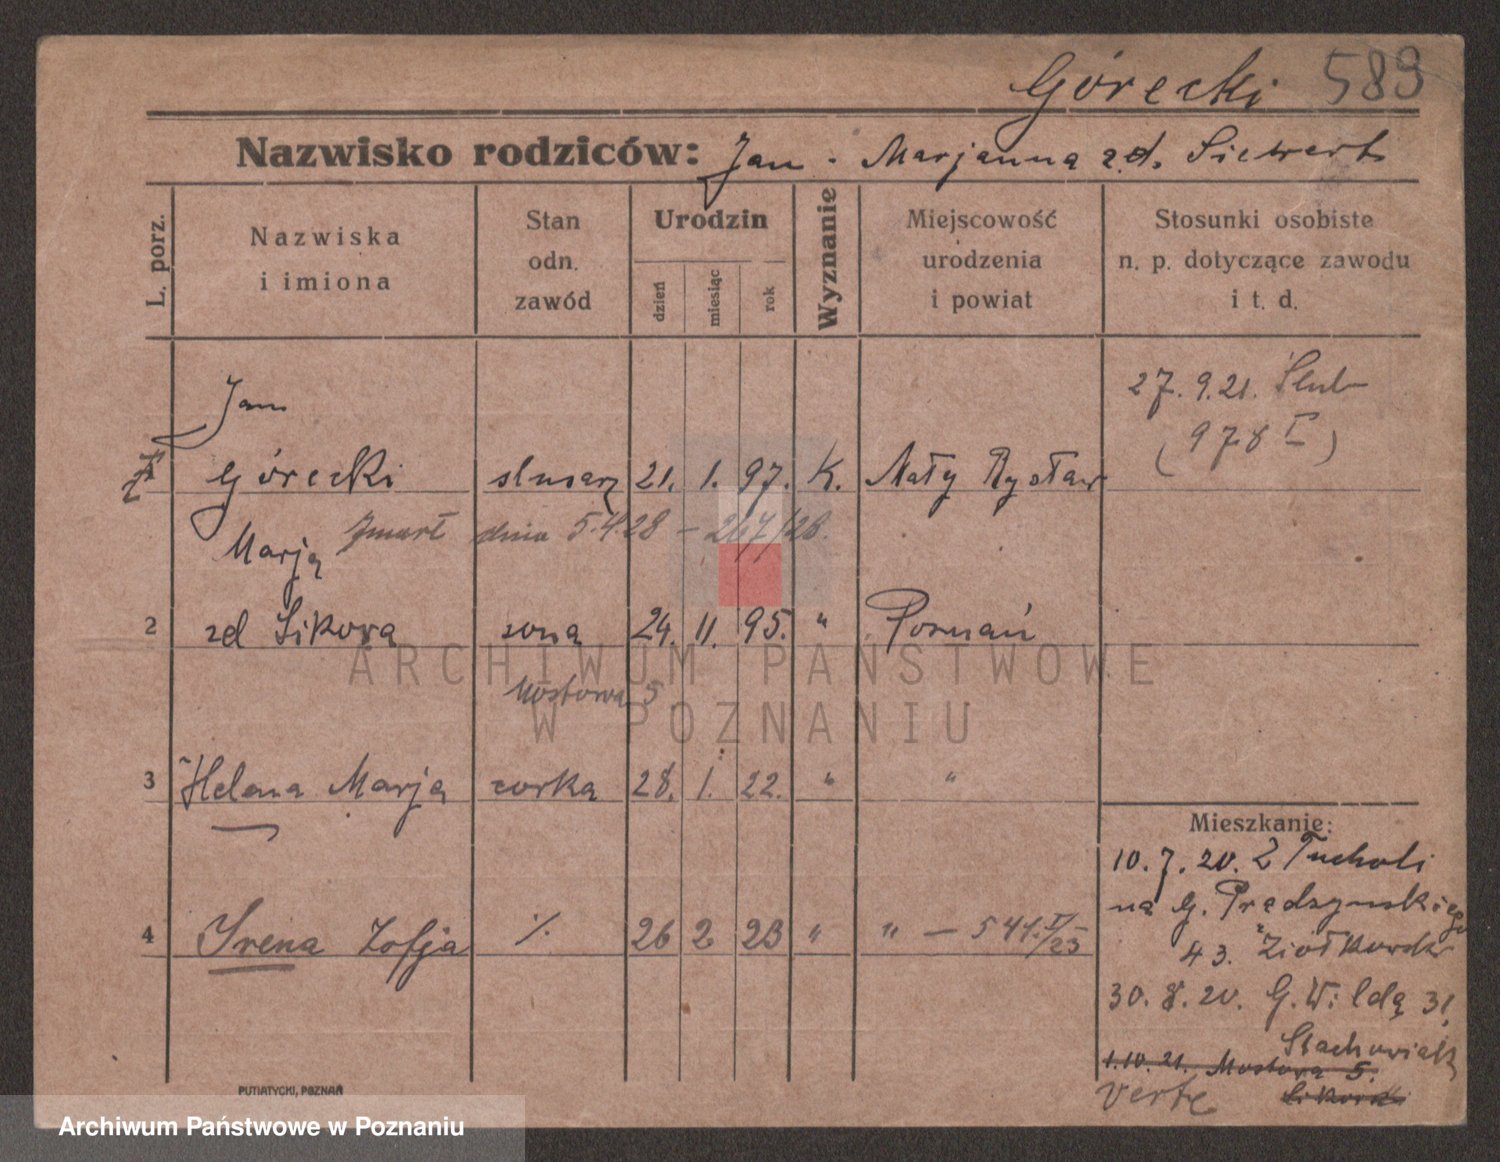 Górecki 589
Nazwisko rodziców: Jan - Marjanna zd. Siewert
L. porz.
Nazwiska
i imiona
Stan
odn.
zawód
Urodzin
dzień
miesiąc
rok
Wyznanie
Miejscowość
urodzenia
i powiat
Stosunki osobiste
n. p. dotyczące zawodu
i t. d.
27. 9. 21. Ślub
(978 I)
Jan
Górecki ślusarz 21. 1. 97. K. Mały
Zmarł dnia 5.4.28 - 267/28.
Marja
2 zd Sikora żona 24. 11. 95. " Poznań
Mostowa 5
3 Helena Marja córka 28. 1. 22. " "
4 Irena Zofja ./. 26 2 23 " " — 541 I/23
Mieszkanie:
10. 7. 20. Z Tucholi
na G. Prądzynskiego
43. Ziółkowski
30. 8. 20. G. Wildą 31,
Stachowiak
1. 10. 21. Mostowa 5.
Sikora
verte
PUTIATYCKI, POZNAŃ
ARCHIWUM PAŃSTWOWE
W POZNANIU
Archiwum Państwowe w Poznaniu